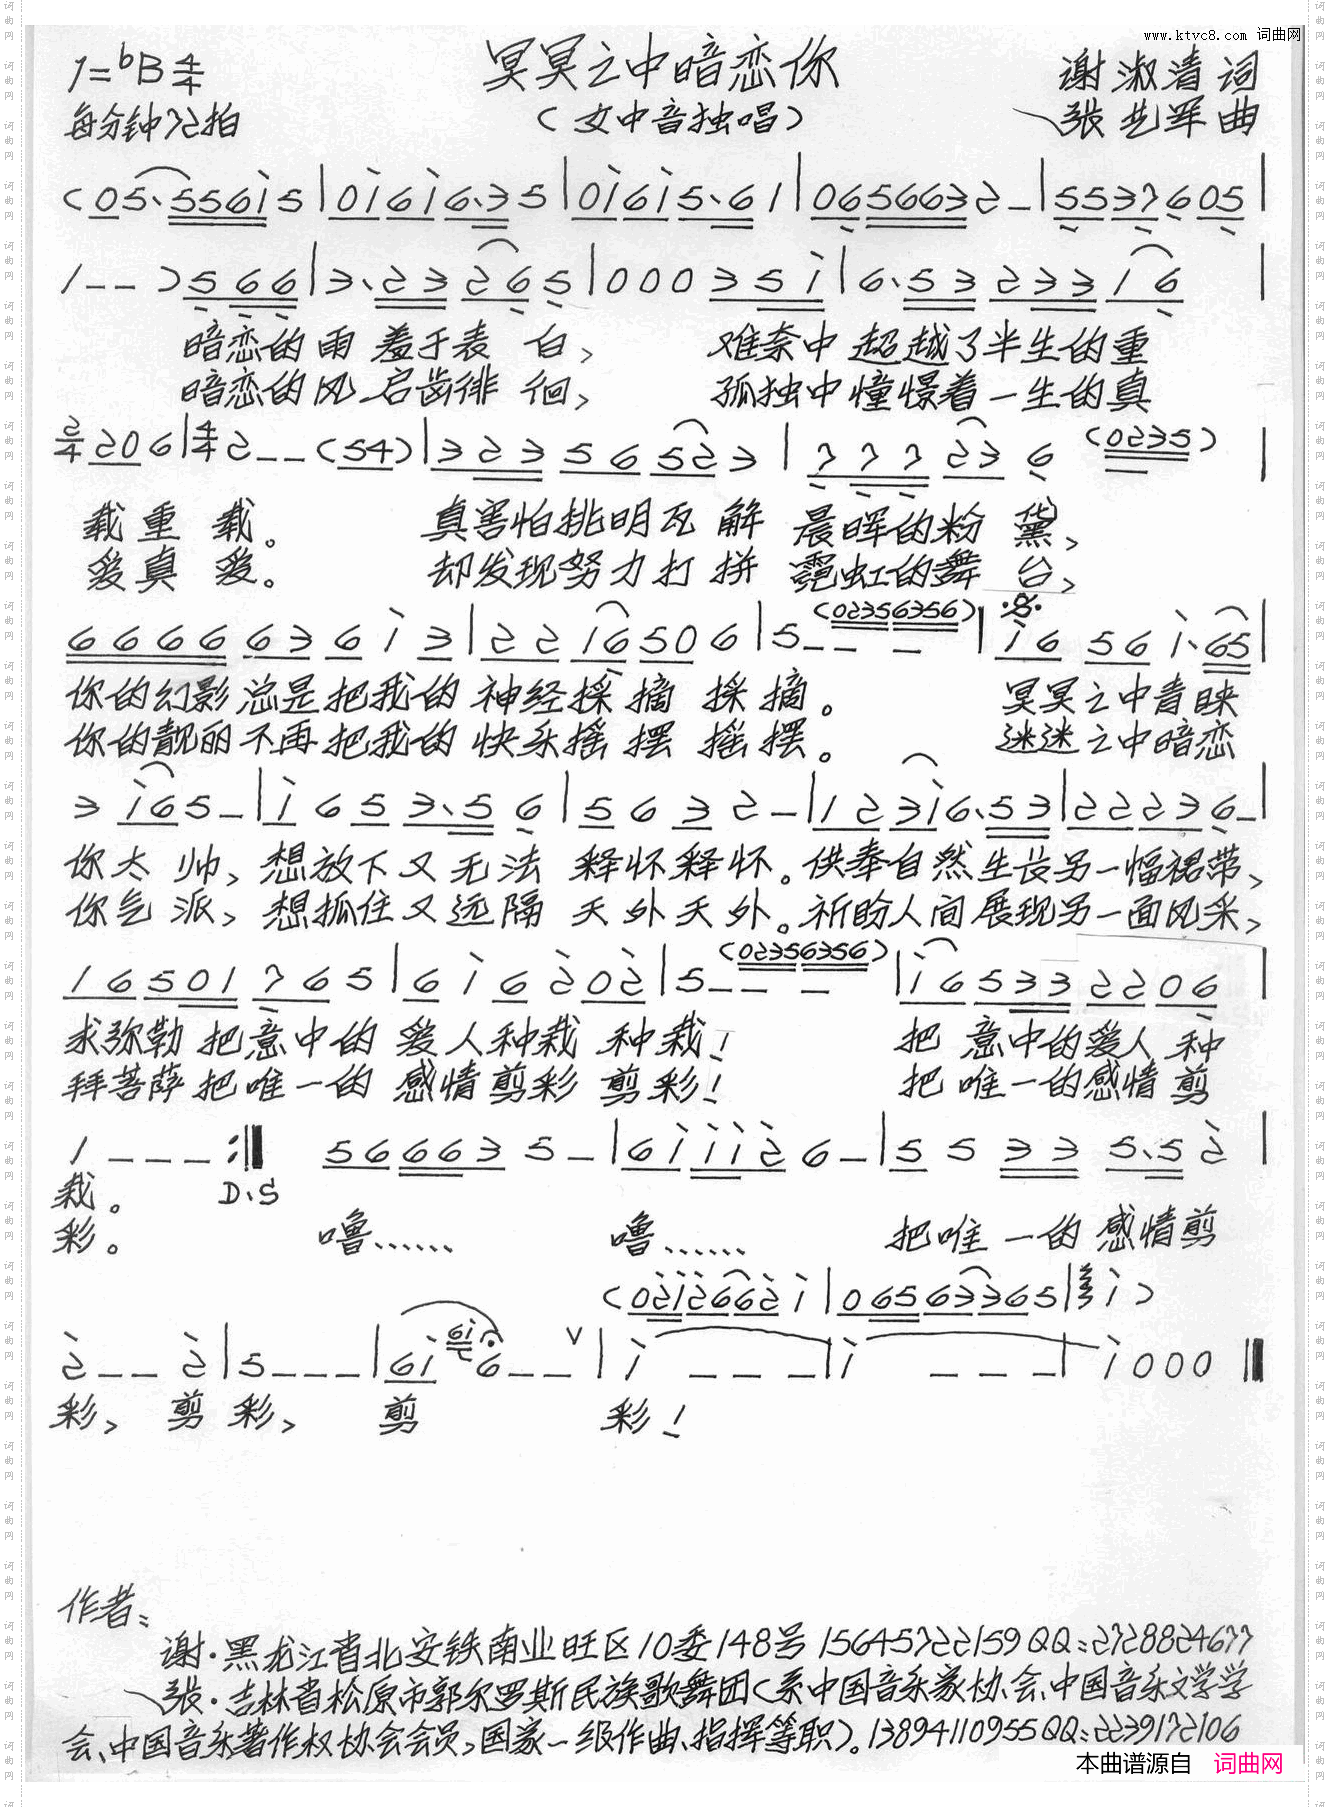 www.ktvc8.com 词曲网
1=bB 4/4
冥冥之中暗恋你
谢淑清 词
每分钟72拍
（女中音独唱）
张艺军 曲
(05·5561̇5|01̇61̇6·35|01̇61̇5·61|0656632-|5537605|
1--)566|3·23265|000351̇|6·5323316|
暗恋的雨羞于表白、 难奈中超越了半生的重
暗恋的风启齿徘徊、 孤独中憧憬着一生的真
2/4 206|4/4 2--(54)|32356523|777236(0235)|
载重载。 真害怕挑明瓦解 晨晖的粉黛、
爱真爱。 却发现努力打拼 霓虹的舞台、
66666361̇3|221̇6506|5---(02356356)|1̇6561̇·65|
你的幻影总是把我的神经採摘採摘。 冥冥之中青睐
你的靓丽不再把我的快乐摇摆摇摆。 迷迷之中暗恋
31̇65-|1̇653·56|5632-|1231̇6·53|22236-|
你太帅、想放下又无法释怀释怀。供奉自然生长另一幅裙带、
你气派、想抓住又远隔天外天外。祈盼人间展现另一面风采、
16501765|61̇62̇02̇|5---(02356356)|1̇65332206|
求弥勒把意中的爱人种栽种栽！ 把意中的爱人种
拜菩萨把唯一的感情剪彩剪彩！ 把唯一的感情剪
1---:‖ 566635-|61̇1̇1̇2̇6-|55335·52̇|
栽。 D.S
彩。 噜…… 噜…… 把唯一的感情剪
(02̇1̇2̇662̇1̇|06563365|1̇)
2̇--2̇|5---|61̇6--∨|1̇---|1̇---|1̇000‖
彩、剪彩、 剪 彩！
作者：
谢·黑龙江省北安铁南业旺区10委148号 15645722159QQ：2728824677
张·吉林省松原市郭尔罗斯民族歌舞团（系中国音乐家协会、中国音乐文学学
会、中国音乐著作权协会会员，国家一级作曲、指挥等职）。13894110955QQ：2239172106
本曲谱源自 词曲网